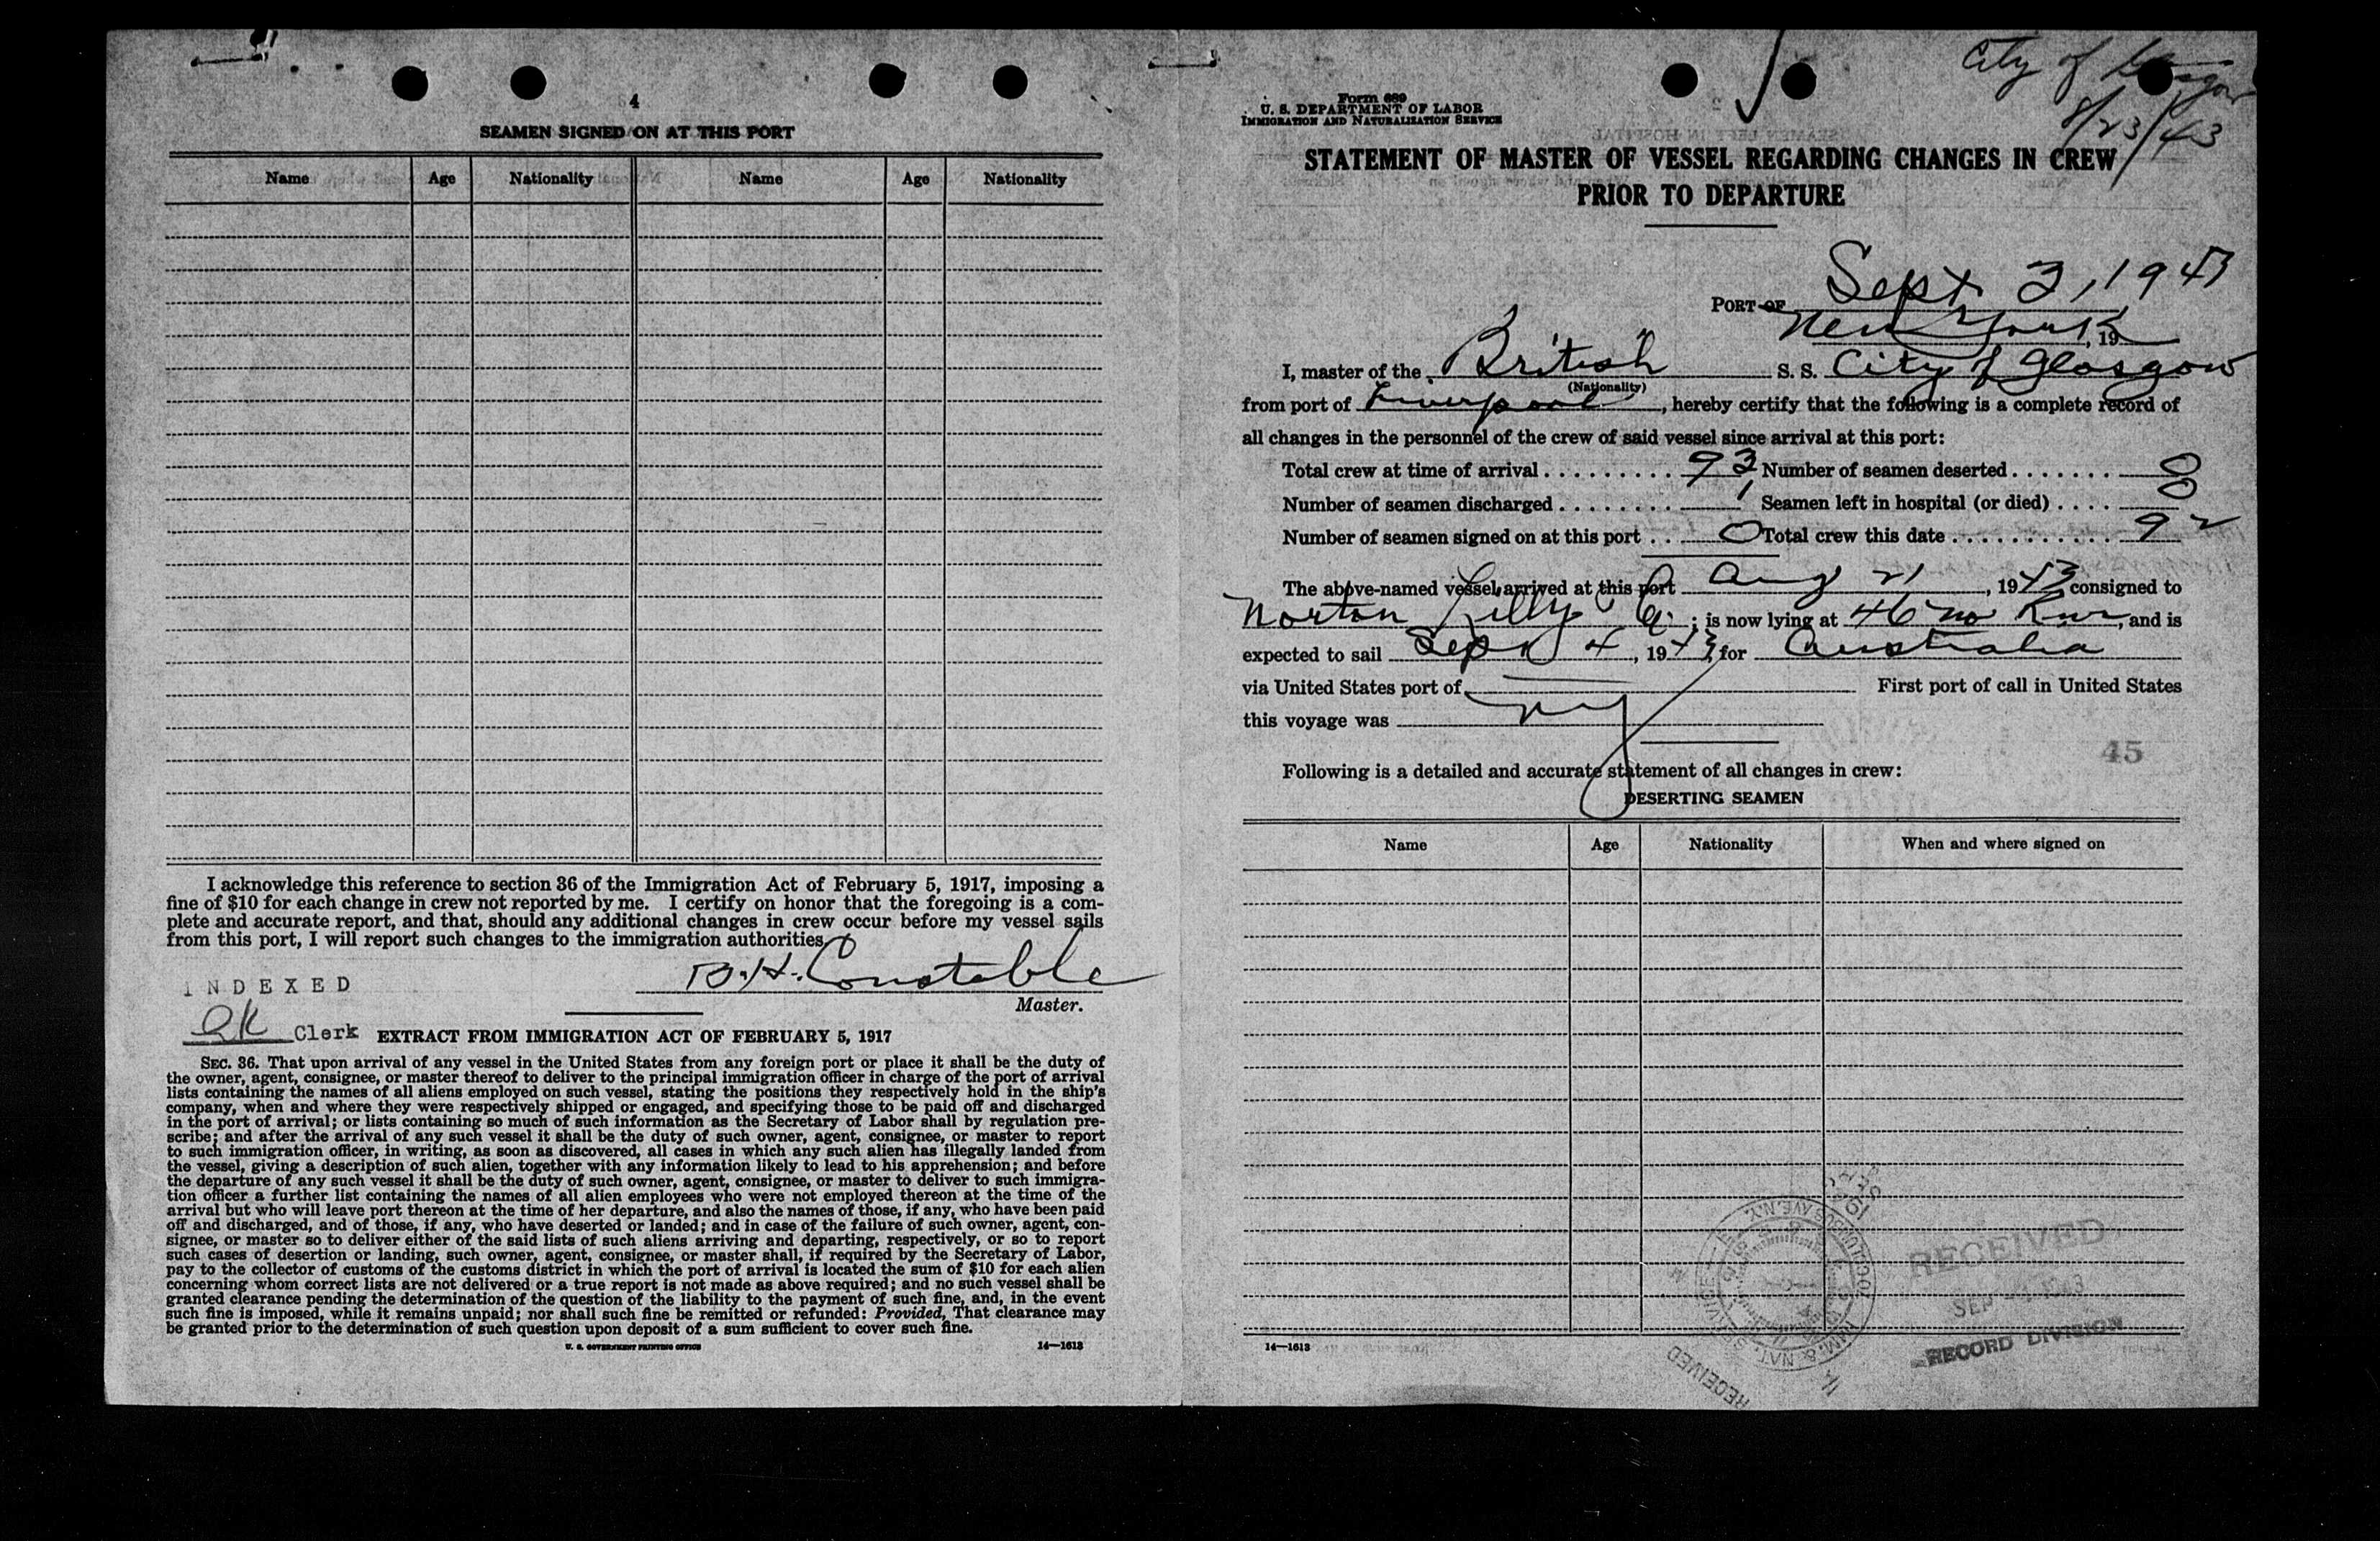 4
SEAMEN SIGNED ON AT THIS PORT
Name Age Nationality Name Age Nationality
I acknowledge this reference to section 36 of the Immigration Act of February 5, 1917, imposing a
fine of $10 for each change in crew not reported by me. I certify on honor that the foregoing is a com-
plete and accurate report, and that, should any additional changes in crew occur before my vessel sails
from this port, I will report such changes to the immigration authorities.
B.H. Constable
Master.
INDEXED
Clerk
EXTRACT FROM IMMIGRATION ACT OF FEBRUARY 5, 1917
SEC. 36. That upon arrival of any vessel in the United States from any foreign port or place it shall be the duty of
the owner, agent, consignee, or master thereof to deliver to the principal immigration officer in charge of the port of arrival
lists containing the names of all aliens employed on such vessel, stating the positions they respectively hold in the ship's
company, when and where they were respectively shipped or engaged, and specifying those to be paid off and discharged
in the port of arrival; or lists containing so much of such information as the Secretary of Labor shall by regulation pre-
scribe; and after the arrival of any such vessel it shall be the duty of such owner, agent, consignee, or master to report
to such immigration officer, in writing, as soon as discovered, all cases in which any such alien has illegally landed from
the vessel, giving a description of such alien, together with any information likely to lead to his apprehension; and before
the departure of any such vessel it shall be the duty of such owner, agent, consignee, or master to deliver to such immigra-
tion officer a further list containing the names of all alien employees who were not employed thereon at the time of the
arrival but who will leave port thereon at the time of her departure, and also the names of those, if any, who have been paid
off and discharged, and of those, if any, who have deserted or landed; and in case of the failure of such owner, agent, con-
signee, or master so to deliver either of the said lists of such aliens arriving and departing, respectively, or so to report
such cases of desertion or landing, such owner, agent, consignee, or master shall, if required by the Secretary of Labor,
pay to the collector of customs of the customs district in which the port of arrival is located the sum of $10 for each alien
concerning whom correct lists are not delivered or a true report is not made as above required; and no such vessel shall be
granted clearance pending the determination of the question of the liability to the payment of such fine, and, in the event
such fine is imposed, while it remains unpaid; nor shall such fine be remitted or refunded: Provided, That clearance may
be granted prior to the determination of such question upon deposit of a sum sufficient to cover such fine.
U. S. GOVERNMENT PRINTING OFFICE 14—1613
City of Glasgow
8/23/43
Form 689
U. S. DEPARTMENT OF LABOR
IMMIGRATION AND NATURALIZATION SERVICE
STATEMENT OF MASTER OF VESSEL REGARDING CHANGES IN CREW
PRIOR TO DEPARTURE
Sept 3, 1943
PORT OF
New York, 19
I, master of the British S. S. City of Glasgow
(Nationality)
from port of Liverpool, hereby certify that the following is a complete record of
all changes in the personnel of the crew of said vessel since arrival at this port:
Total crew at time of arrival 93 Number of seamen deserted 0
Number of seamen discharged 1 Seamen left in hospital (or died) 0
Number of seamen signed on at this port 0 Total crew this date 92
The above-named vessel arrived at this port Aug 21, 1943 consigned to
Norton Lilly Co.; is now lying at 46 No River, and is
expected to sail Sept 4, 1943, for Australia
via United States port of First port of call in United States
this voyage was NY
45
Following is a detailed and accurate statement of all changes in crew:
DESERTING SEAMEN
Name Age Nationality When and where signed on
RECEIVED
SEP 1943
RECORD DIVISION
RECEIVED
14—1613